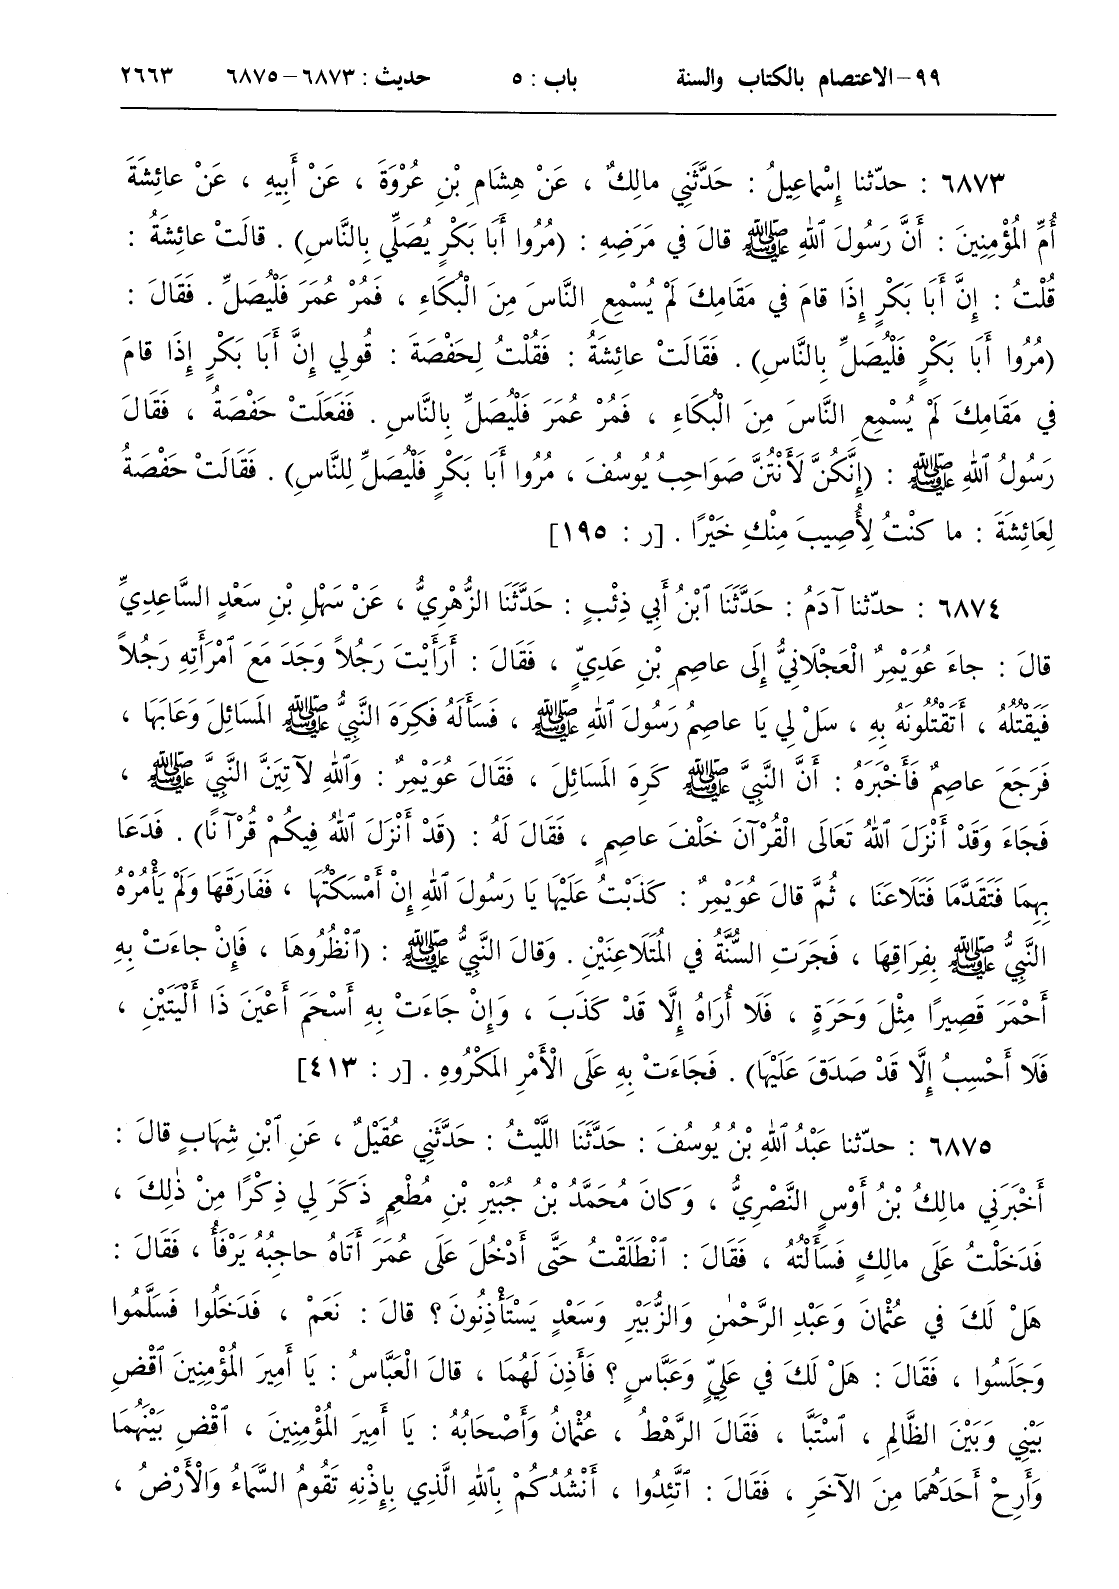 ٩٩-الاعتصام بالكتاب والسنة باب : ٥ حديث : ٦٨٧٣-٦٨٧٥ ٢٦٦٣
٦٨٧٣ : حدّثنا إِسْماعِيلُ : حَدَّثَنِي مالِكٌ ، عَنْ هِشَامِ بْنِ عُرْوَةَ ، عَنْ أَبِيهِ ، عَنْ عائِشَةَ
أُمِّ الْمُؤْمِنِينَ : أَنَّ رَسُولَ اللهِ ﷺ قالَ في مَرَضِهِ : (مُرُوا أَبَا بَكْرٍ يُصَلِّي بِالنَّاسِ) . قالَتْ عائِشَةُ :
قُلْتُ : إِنَّ أَبَا بَكْرٍ إِذَا قامَ في مَقَامِكَ لَمْ يُسْمِعِ النَّاسَ مِنَ الْبُكَاءِ ، فَمُرْ عُمَرَ فَلْيُصَلِّ . فَقَالَ :
(مُرُوا أَبَا بَكْرٍ فَلْيُصَلِّ بِالنَّاسِ) . فَقَالَتْ عائِشَةُ : فَقُلْتُ لِحَفْصَةَ : قُولِي إِنَّ أَبَا بَكْرٍ إِذَا قامَ
في مَقَامِكَ لَمْ يُسْمِعِ النَّاسَ مِنَ الْبُكَاءِ ، فَمُرْ عُمَرَ فَلْيُصَلِّ بِالنَّاسِ . فَفَعَلَتْ حَفْصَةُ ، فَقَالَ
رَسُولُ اللهِ ﷺ : (إِنَّكُنَّ لَأَنْتُنَّ صَوَاحِبُ يُوسُفَ ، مُرُوا أَبَا بَكْرٍ فَلْيُصَلِّ لِلنَّاسِ) . فَقَالَتْ حَفْصَةُ
لِعَائِشَةَ : ما كنْتُ لِأُصِيبَ مِنْكِ خَيْرًا . [ر : ١٩٥]
٦٨٧٤ : حدّثنا آدَمُ : حَدَّثَنَا ٱبْنُ أَبِي ذِئْبٍ : حَدَّثَنَا الزُّهْرِيُّ ، عَنْ سَهْلِ بْنِ سَعْدٍ السَّاعِدِيِّ
قالَ : جاءَ عُوَيْمِرٌ الْعَجْلَانِيُّ إِلَى عاصِمِ بْنِ عَدِيٍّ ، فَقَالَ : أَرَأَيْتَ رَجُلاً وَجَدَ مَعَ ٱمْرَأَتِهِ رَجُلاً
فَيَقْتُلُهُ ، أَتَقْتُلُونَهُ بِهِ ، سَلْ لِي يَا عاصِمُ رَسُولَ اللهِ ﷺ ، فَسَأَلَهُ فَكَرِهَ النَّبِيُّ ﷺ الْمَسَائِلَ وَعَابَهَا ،
فَرَجَعَ عاصِمٌ فَأَخْبَرَهُ : أَنَّ النَّبِيَّ ﷺ كَرِهَ الْمَسَائِلَ ، فَقَالَ عُوَيْمِرٌ : وَاللهِ لَآتِيَنَّ النَّبِيَّ ﷺ ،
فَجَاءَ وَقَدْ أَنْزَلَ اللهُ تَعَالَى الْقُرْآنَ خَلْفَ عاصِمٍ ، فَقَالَ لَهُ : (قَدْ أَنْزَلَ اللهُ فِيكُمْ قُرْآنًا) . فَدَعَا
بِهِمَا فَتَقَدَّمَا فَتَلَاعَنَا ، ثُمَّ قالَ عُوَيْمِرٌ : كَذَبْتُ عَلَيْهَا يَا رَسُولَ اللهِ إِنْ أَمْسَكْتُهَا ، فَفَارَقَهَا وَلَمْ يَأْمُرْهُ
النَّبِيُّ ﷺ بِفِرَاقِهَا ، فَجَرَتِ السُّنَّةُ في الْمُتَلَاعِنَيْنِ . وَقالَ النَّبِيُّ ﷺ : (ٱنْظُرُوهَا ، فَإِنْ جاءَتْ بِهِ
أَحْمَرَ قَصِيرًا مِثْلَ وَحَرَةٍ ، فَلَا أُرَاهُ إِلَّا قَدْ كَذَبَ ، وَإِنْ جاءَتْ بِهِ أَسْحَمَ أَعْيَنَ ذَا أَلْيَتَيْنِ ،
فَلَا أَحْسِبُ إِلَّا قَدْ صَدَقَ عَلَيْهَا) . فَجَاءَتْ بِهِ عَلَى الْأَمْرِ الْمَكْرُوهِ . [ر : ٤١٣]
٦٨٧٥ : حدّثنا عَبْدُ اللهِ بْنُ يُوسُفَ : حَدَّثَنَا اللَّيْثُ : حَدَّثَنِي عُقَيْلٌ ، عَنِ ٱبْنِ شِهَابٍ قالَ :
أَخْبَرَنِي مالِكُ بْنُ أَوْسٍ النَّصْرِيُّ ، وَكانَ مُحَمَّدُ بْنُ جُبَيْرِ بْنِ مُطْعِمٍ ذَكَرَ لِي ذِكْرًا مِنْ ذٰلِكَ ،
فَدَخَلْتُ عَلَى مالِكٍ فَسَأَلْتُهُ ، فَقَالَ : ٱنْطَلَقْتُ حَتَّى أَدْخُلَ عَلَى عُمَرَ أَتَاهُ حاجِبُهُ يَرْفَأُ ، فَقَالَ :
هَلْ لَكَ في عُثْمانَ وَعَبْدِ الرَّحْمٰنِ وَالزُّبَيْرِ وَسَعْدٍ يَسْتَأْذِنُونَ؟ قالَ : نَعَمْ ، فَدَخَلُوا فَسَلَّمُوا
وَجَلَسُوا ، فَقَالَ : هَلْ لَكَ في عَلِيٍّ وَعَبَّاسٍ؟ فَأَذِنَ لَهُمَا ، قالَ الْعَبَّاسُ : يَا أَمِيرَ الْمُؤْمِنِينَ ٱقْضِ
بَيْنِي وَبَيْنَ الظَّالِمِ ، ٱسْتَبَّا ، فَقَالَ الرَّهْطُ ، عُثْمانُ وَأَصْحَابُهُ : يَا أَمِيرَ الْمُؤْمِنِينَ ، ٱقْضِ بَيْنَهُمَا
وَأَرِحْ أَحَدَهُمَا مِنَ الآخَرِ ، فَقَالَ : ٱتَّئِدُوا ، أَنْشُدُكُمْ بِاللهِ الَّذِي بِإِذْنِهِ تَقُومُ السَّماءُ وَالْأَرْضُ ،